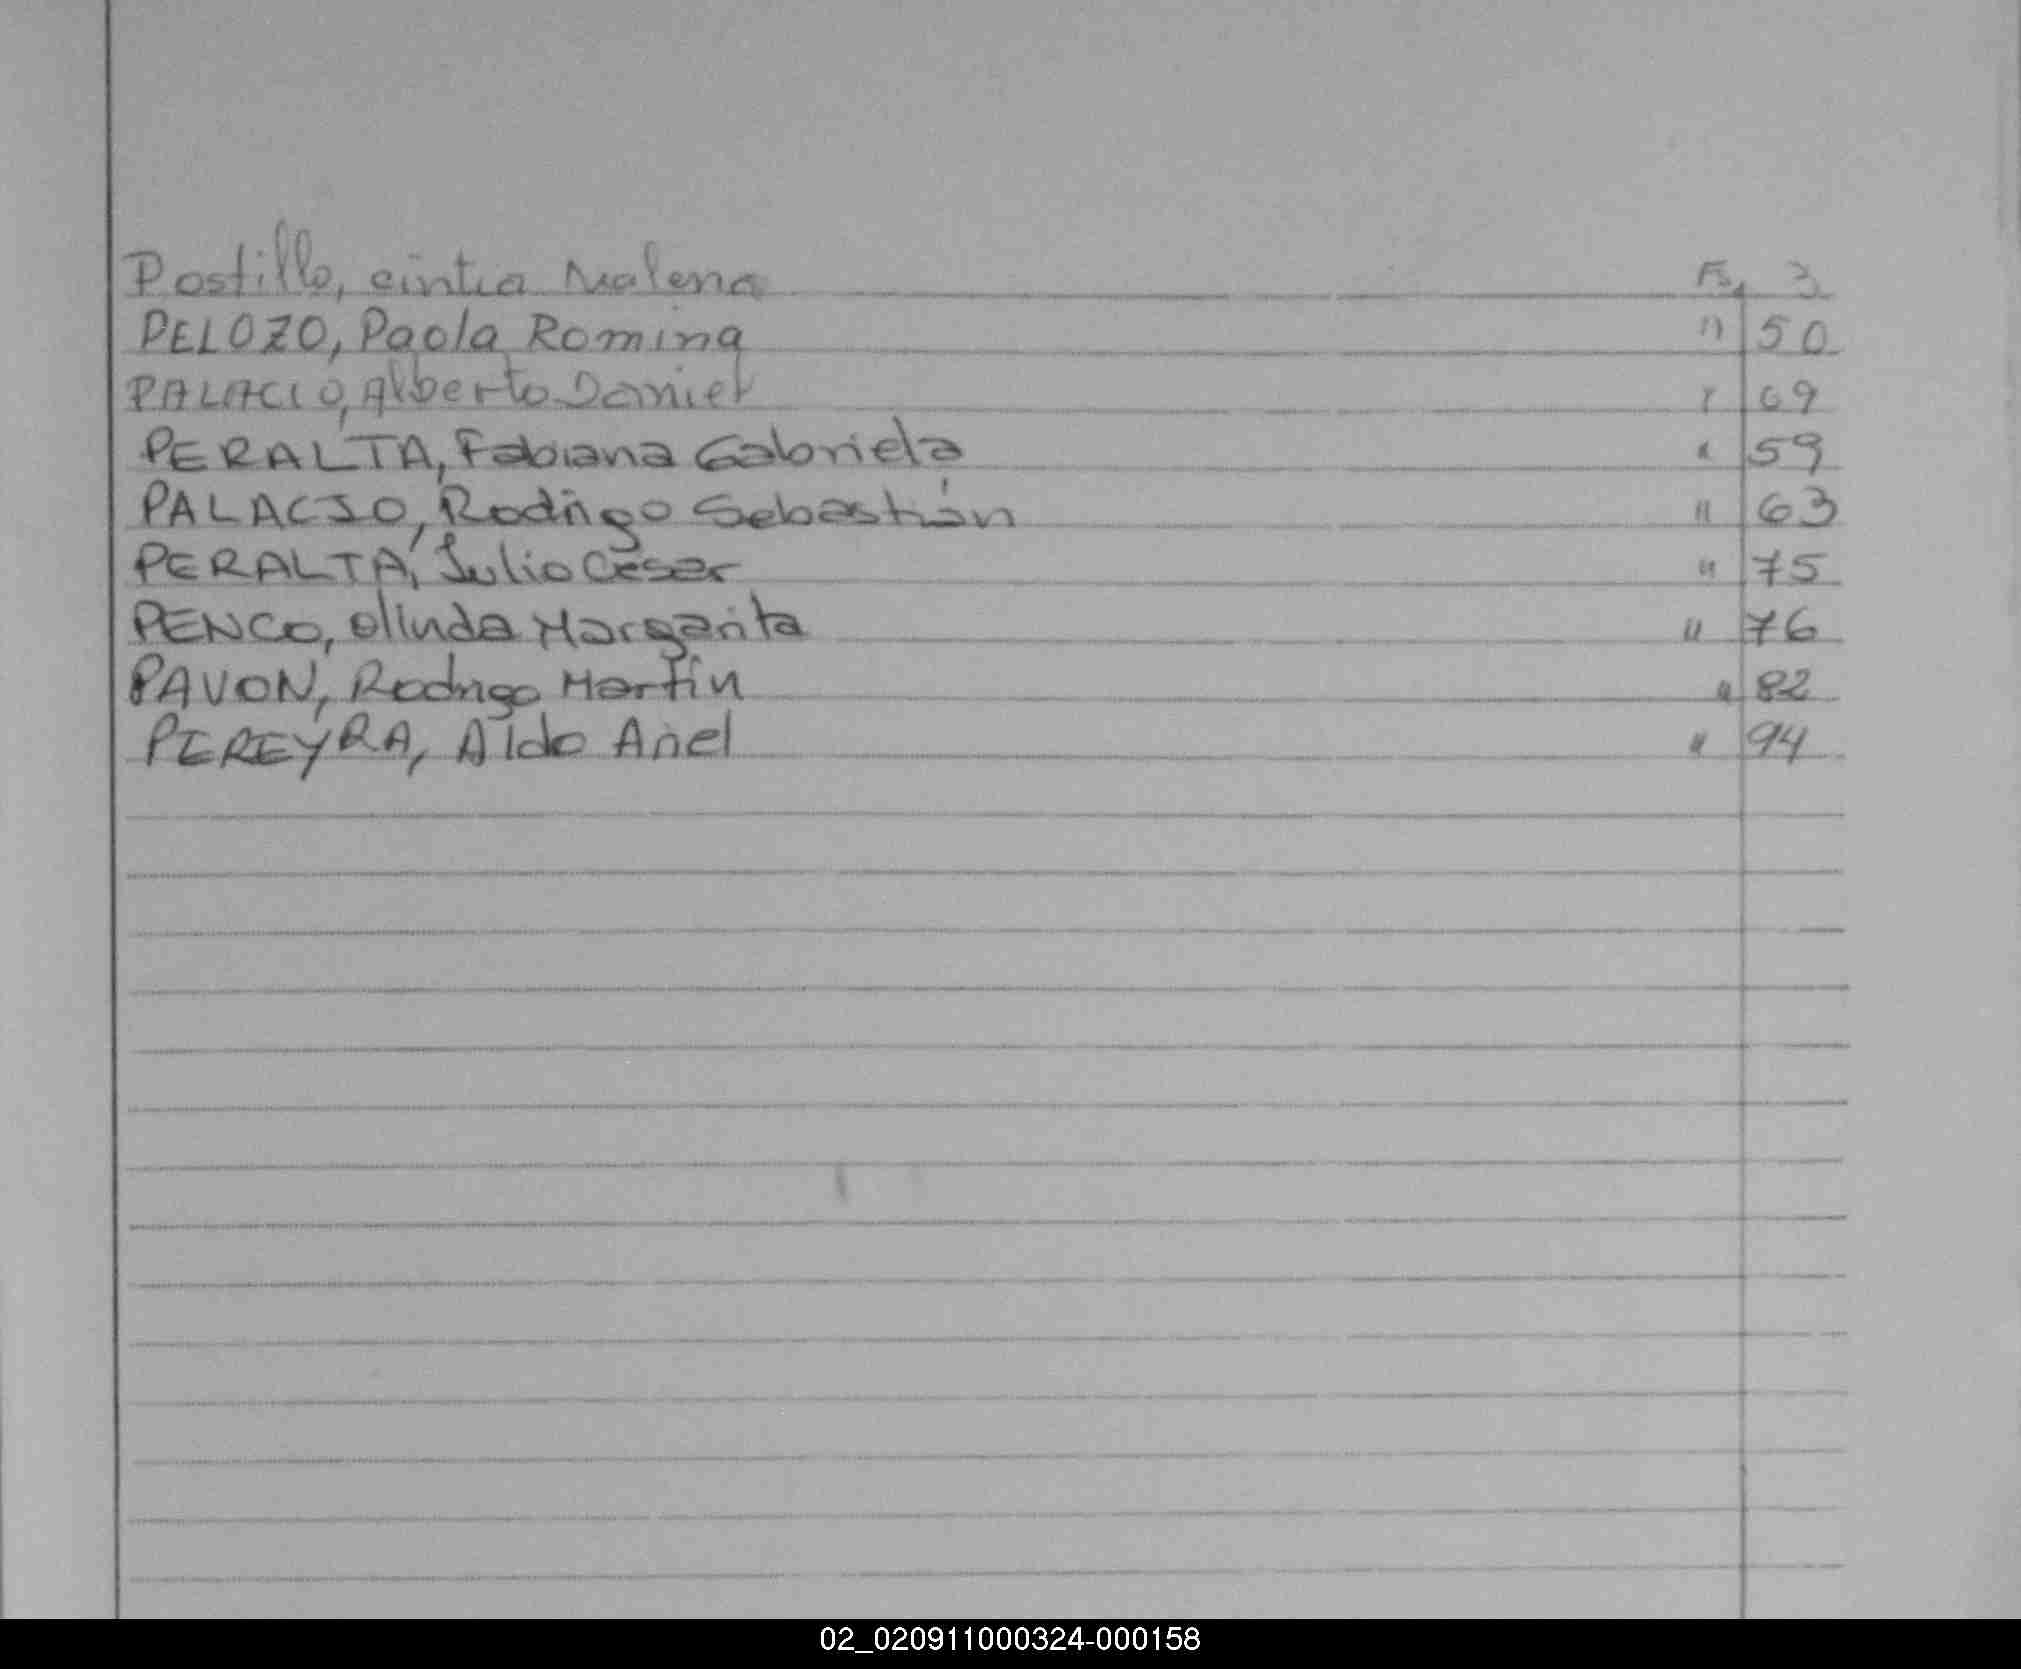 Postillo, cintia Malena Fs. 3
PELOZO, Paola Romina " 50
PALACIO, Alberto Daniel " 69
PERALTA, Fabiana Gabriela " 59
PALACIO, Rodrigo Sebastián " 63
PERALTA, Julio César " 75
PENCO, Olinda Margarita " 76
PAVON, Rodrigo Martín " 82
PEREYRA, Aldo Ariel " 94
02_020911000324-000158